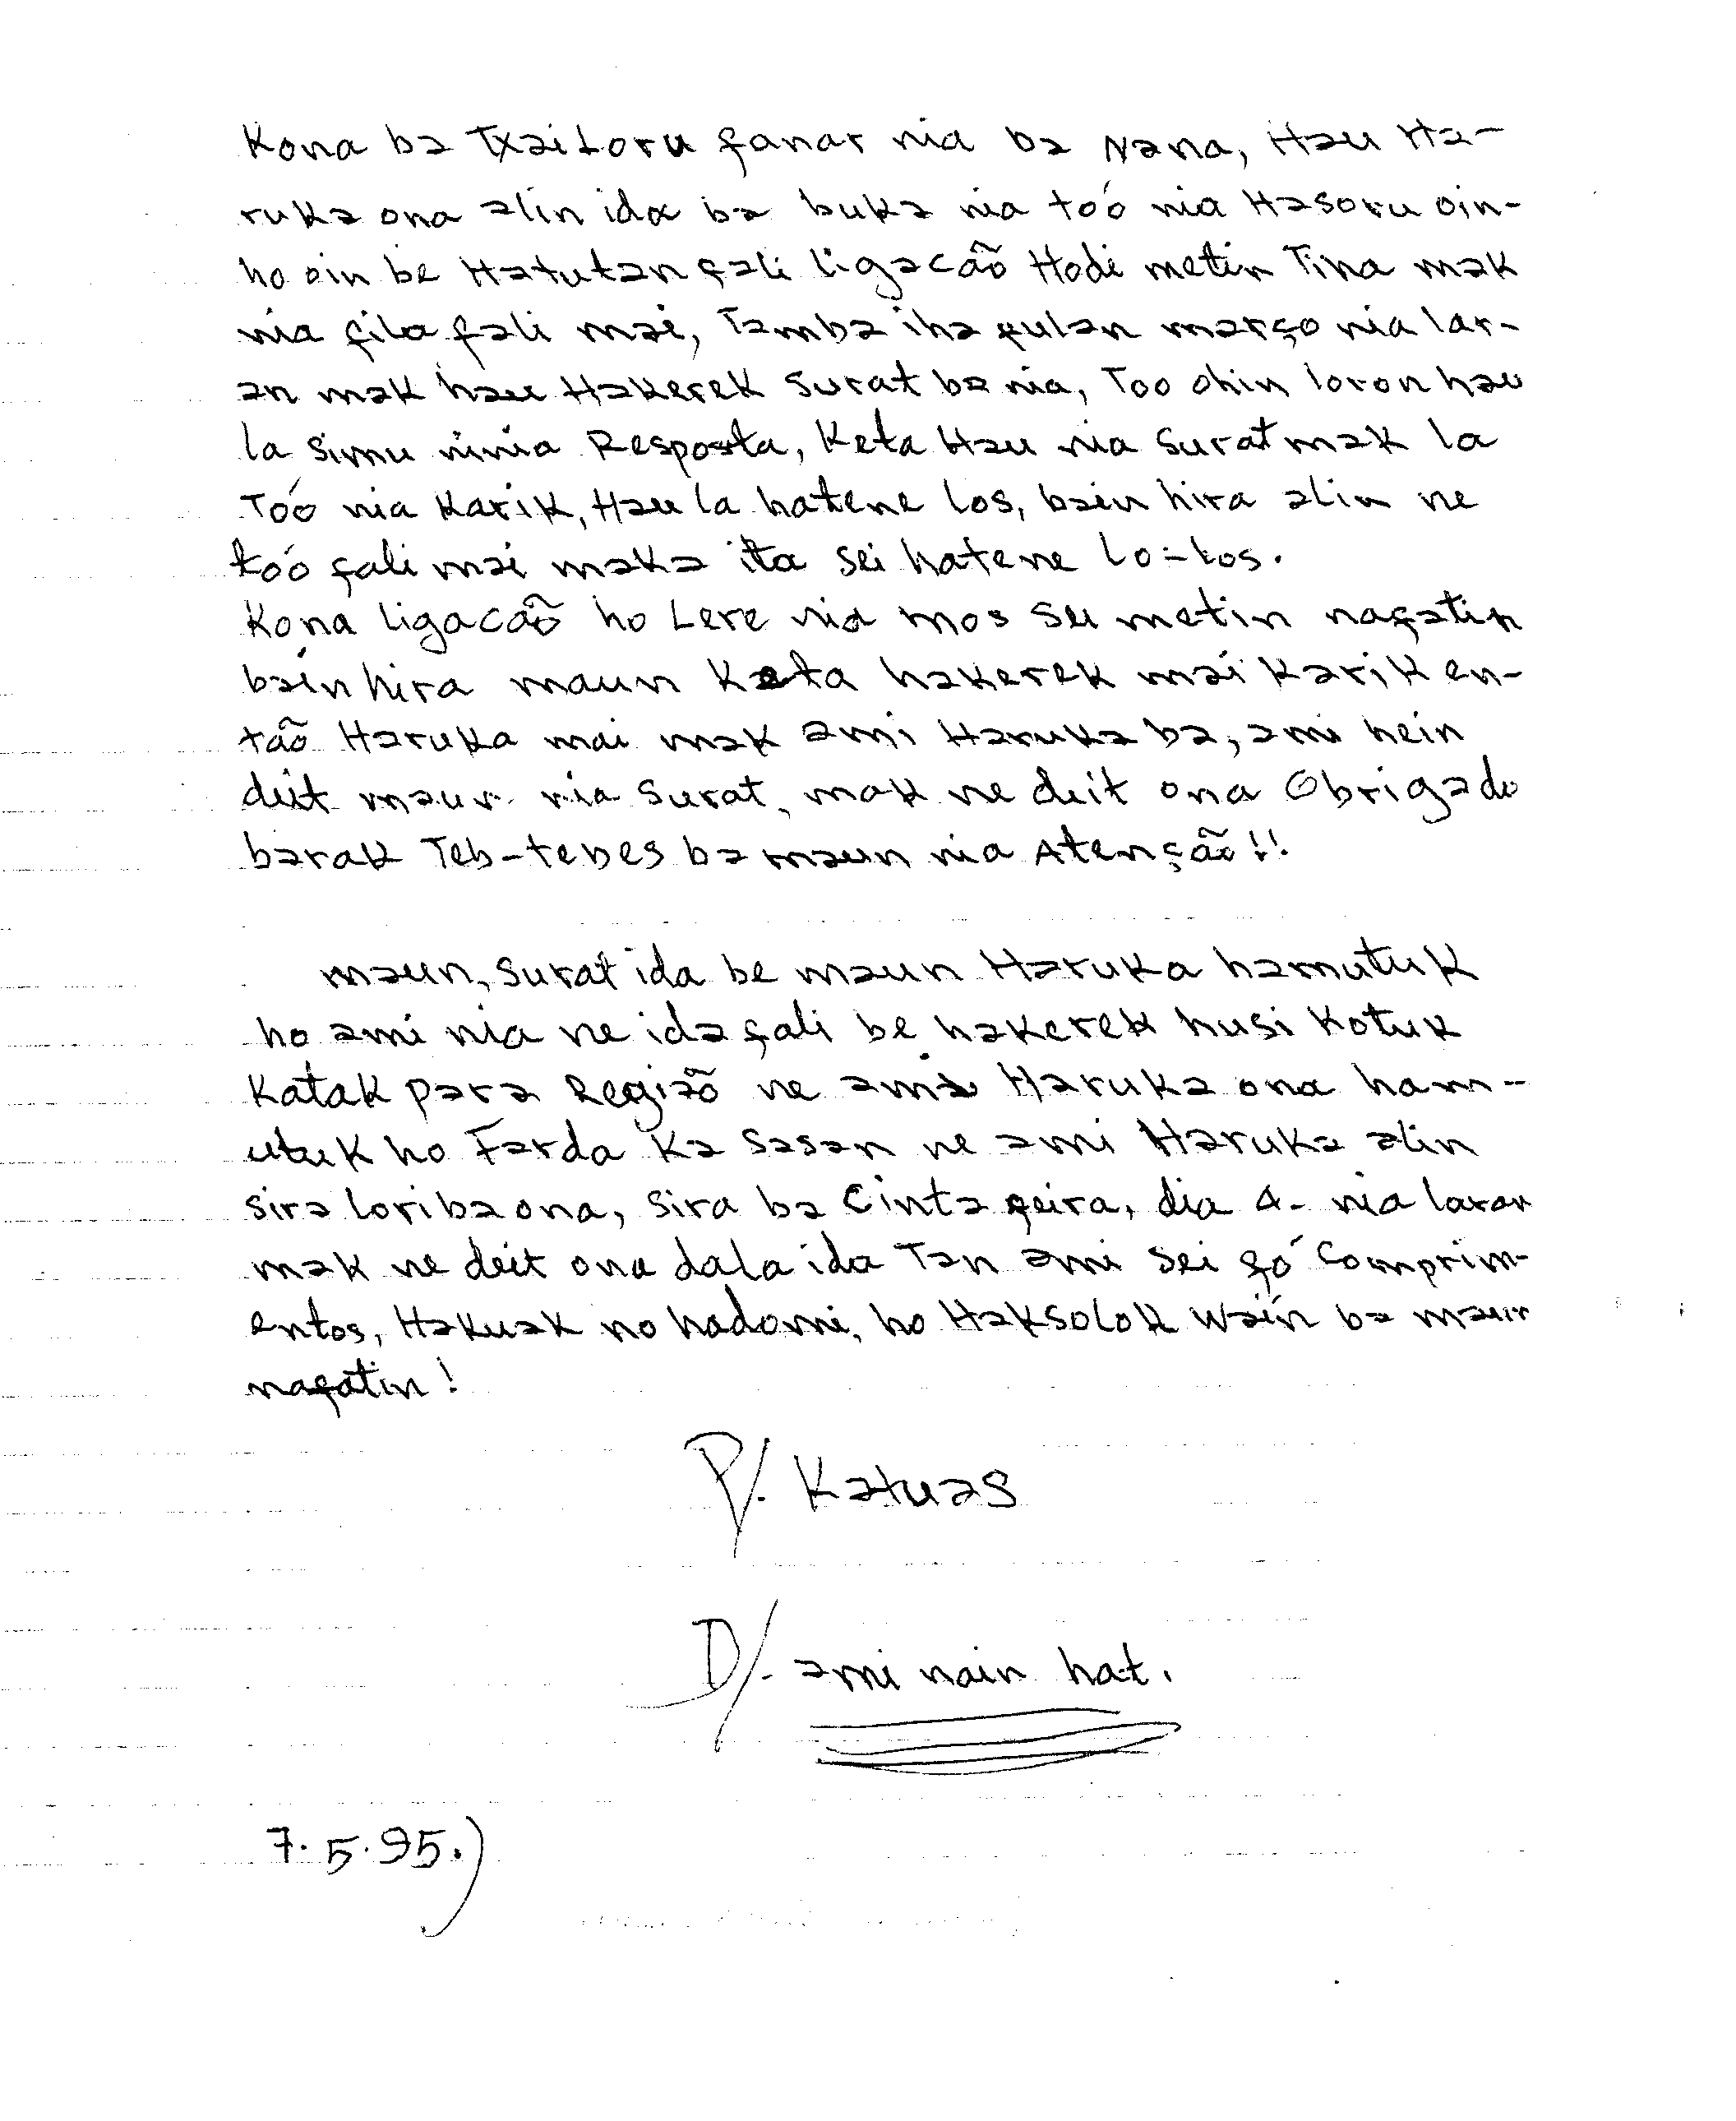 Kona ba Txai Loru fanar nia ba Nana, Hau Ha-
ruka ona alin ida ba buka nia toó nia Hasoru oin-
ho oin be Hatutan fali ligacão Hodi metin Tina mak
nia fila fali mai, Tamba iha fulan março nia lar-
an mak hau Hakerek surat ba nia, Too ohin loron hau
la simu ninia Resposta, Keta Hau nia surat mak la
Toó nia Karik, Hau la hatene los, bain hira alin ne
toó fali mai maka ita sei hatene lo-los.
Kona ligacão ho Lere nia mos sei metin nafatin
bainhira maun Keta hakerek mai Karik en-
tão Haruka mai mak ami Haruka ba, ami hein
deit maun nia surat, mak ne deit ona Obrigado
barak Teb-tebes ba maun nia Atenção!!
maun, surat ida be maun Haruka hamutuk
ho ami nia ne ida fali be hakerek husi Kotuk
Katak para Região ne ami Haruka ona ham-
utuk ho Farda Ka Sasan ne ami Haruka alin
sira lori ba ona, sira ba Cinta feira, dia 4- nia laran
mak ne deit ona dala ida Tan ami sei fó Comprim-
entos, Hakuak no hadomi, ho Haksolok Wain ba maun
nafatin!
P/. Katuas
D/- ami nain hat.
7.5.95.)